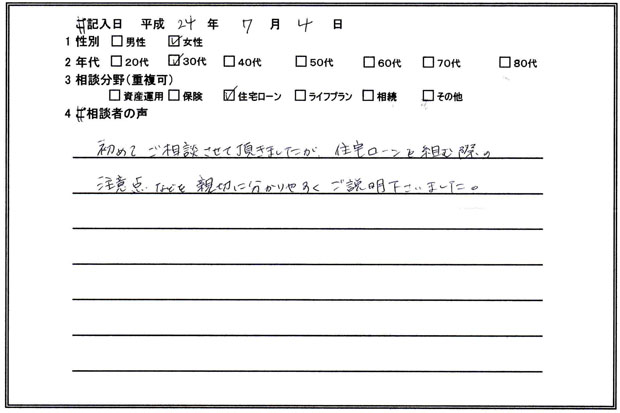 ご記入日 平成 24 年 7 月 4 日
1 性別 □男性 ☑女性
2 年代 □20代 ☑30代 □40代 □50代 □60代 □70代 □80代
3 相談分野(重複可)
□資産運用 □保険 ☑住宅ローン □ライフプラン □相続 □その他
4 ご相談者の声
初めてご相談させて頂きましたが、住宅ローンを組む際の
注意点などを親切に分かりやすくご説明下さいました。